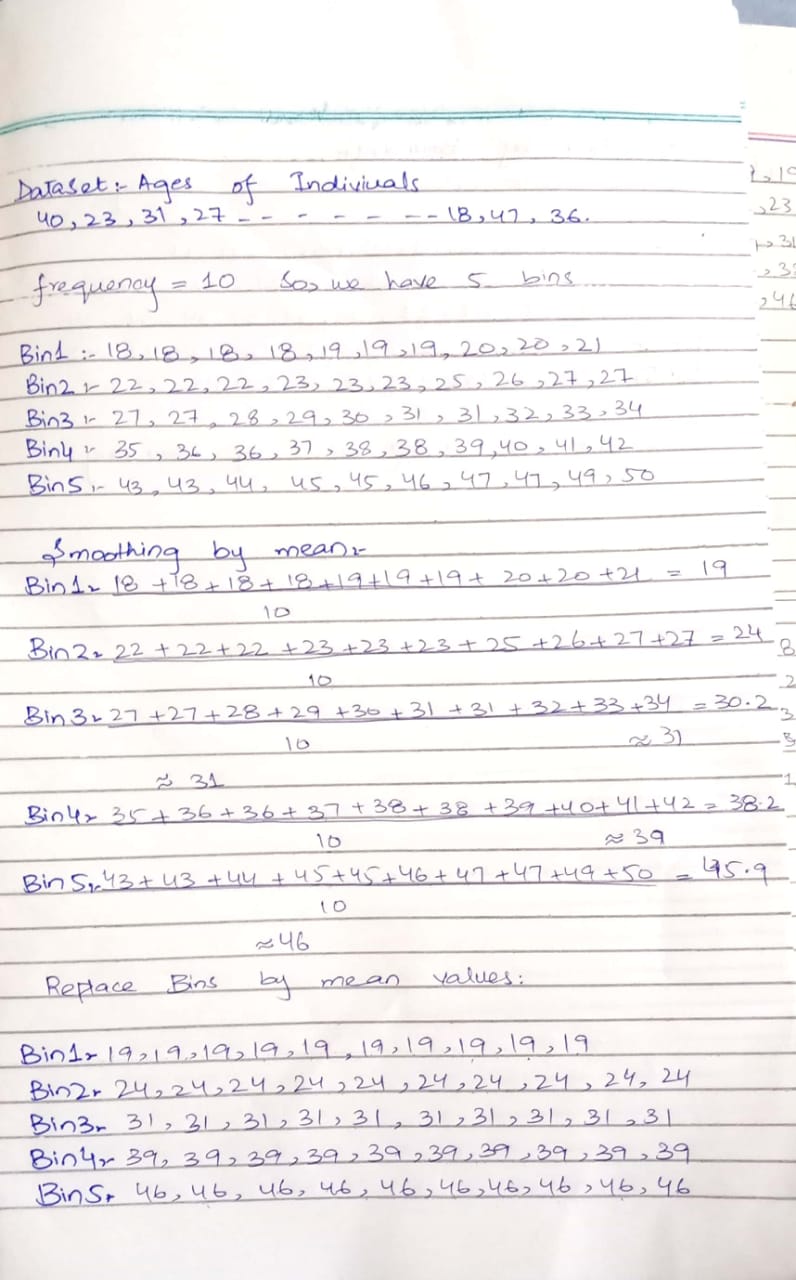 Dataset :- Ages of Indiviuals
40, 23, 31, 27 - - - - - - - - 18, 47, 36.
frequency = 10 So, we have 5 bins
Bin1 :- 18, 18, 18, 18, 19, 19, 19, 20, 20, 21
Bin2 :- 22, 22, 22, 23, 23, 23, 25, 26, 27, 27
Bin3 :- 27, 27, 28, 29, 30, 31, 31, 32, 33, 34
Bin4 :- 35, 36, 36, 37, 38, 38, 39, 40, 41, 42
Bin5 :- 43, 43, 44, 45, 45, 46, 47, 47, 49, 50
Smoothing by mean:-
Bin1= 18 + 18 + 18 + 18 + 19 + 19 + 19 + 20 + 20 + 21 = 19
10
Bin2= 22 + 22 + 22 + 23 + 23 + 23 + 25 + 26 + 27 + 27 = 24
10
Bin3= 27 + 27 + 28 + 29 + 30 + 31 + 31 + 32 + 33 + 34 = 30.2
10 ≈ 31
≈ 31
Bin4= 35 + 36 + 36 + 37 + 38 + 38 + 39 + 40 + 41 + 42 = 38.2
10 ≈ 39
Bin5= 43 + 43 + 44 + 45 + 45 + 46 + 47 + 47 + 49 + 50 = 45.9
10
≈ 46
Replace Bins by mean values:
Bin1= 19, 19, 19, 19, 19, 19, 19, 19, 19, 19
Bin2= 24, 24, 24, 24, 24, 24, 24, 24, 24, 24
Bin3= 31, 31, 31, 31, 31, 31, 31, 31, 31, 31
Bin4= 39, 39, 39, 39, 39, 39, 39, 39, 39, 39
Bin5= 46, 46, 46, 46, 46, 46, 46, 46, 46, 46